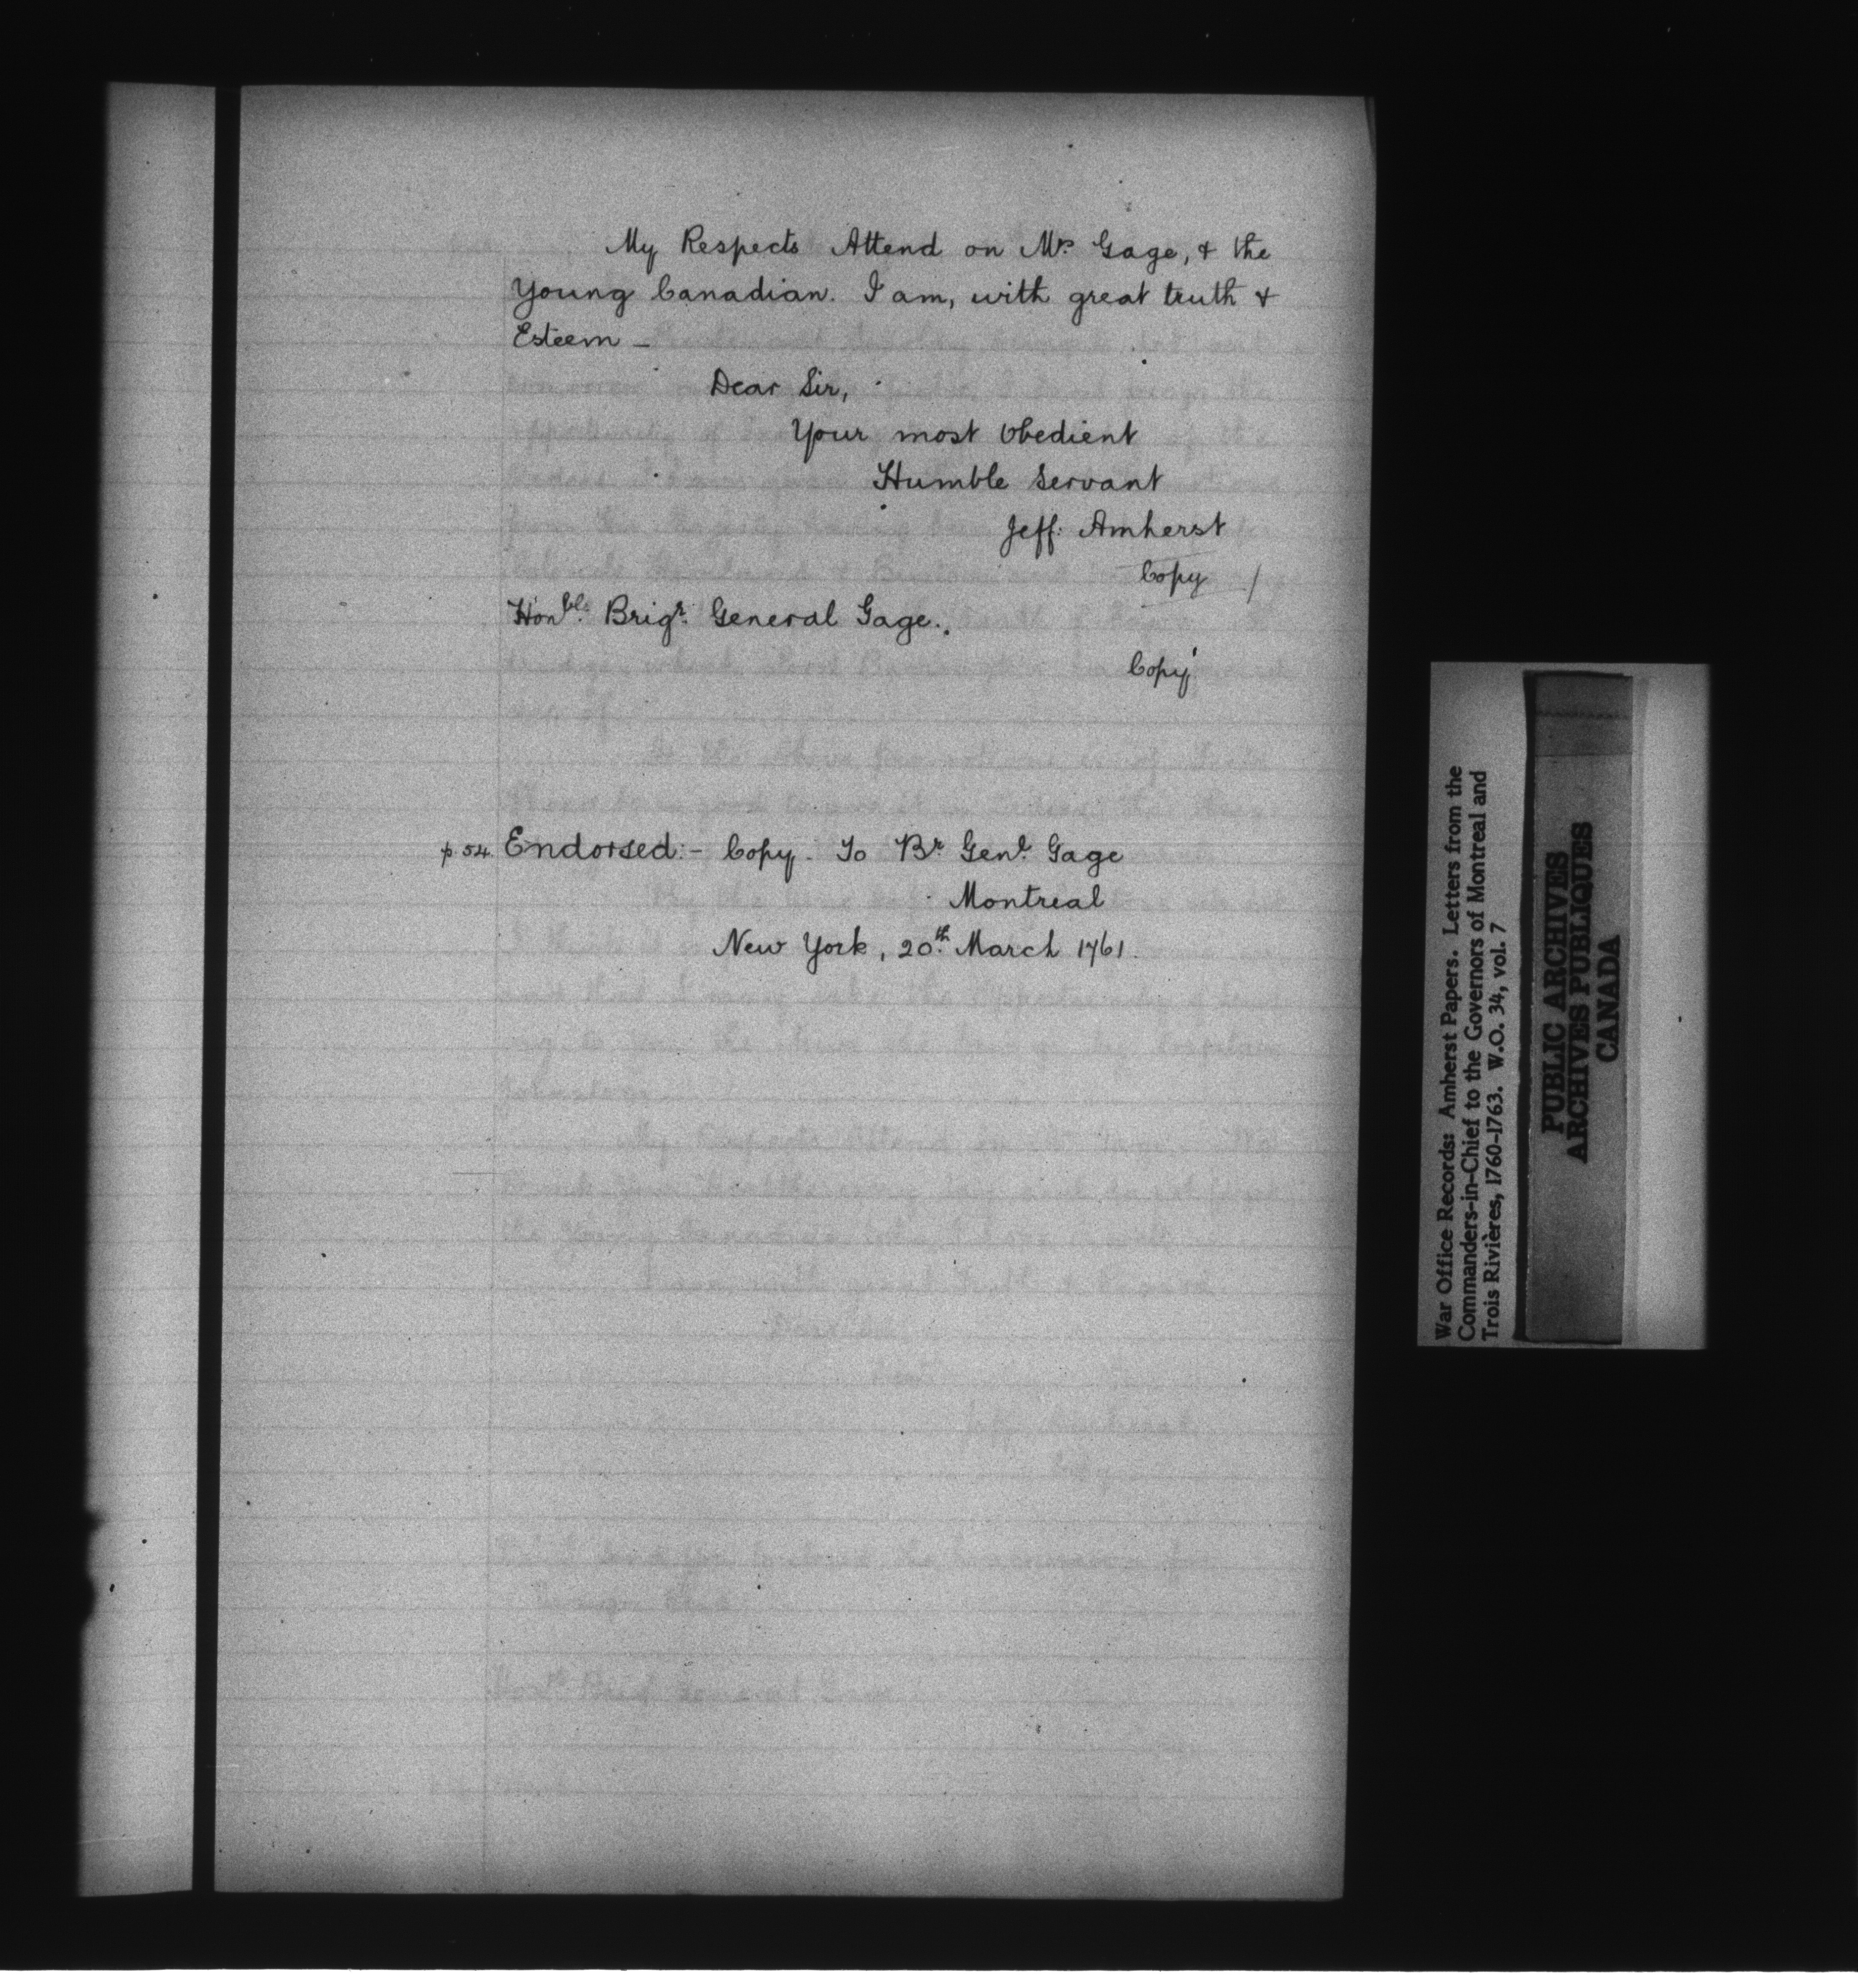 My Respects Attend on Mrs. Gage, & the
Young Canadian. I am, with great truth &
Esteem –
Dear Sir,
Your most Obedient
Humble Servant
Jeff: Amherst
Copy /
Honble. Brigr. General Gage.
Copy
p. 54. Endorsed:- Copy. To Br. Genl. Gage
Montreal
New York, 20th. March 1761.
War Office Records: Amherst Papers. Letters from the
Commanders-in-Chief to the Governors of Montreal and
Trois Rivières, 1760-1763. W.O. 34, vol. 7
PUBLIC ARCHIVES
ARCHIVES PUBLIQUES
CANADA